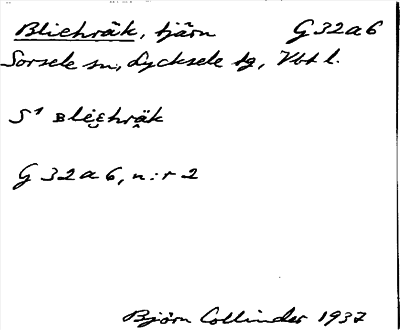 Bliehräk, tjärn G 32 a 6
Sorsele sn, Lycksele tg, Vbt l.
S¹ ʙlie̮ɛ̮hrä̭k
G 32 a 6, n:r 2
Björn Collinder 1937